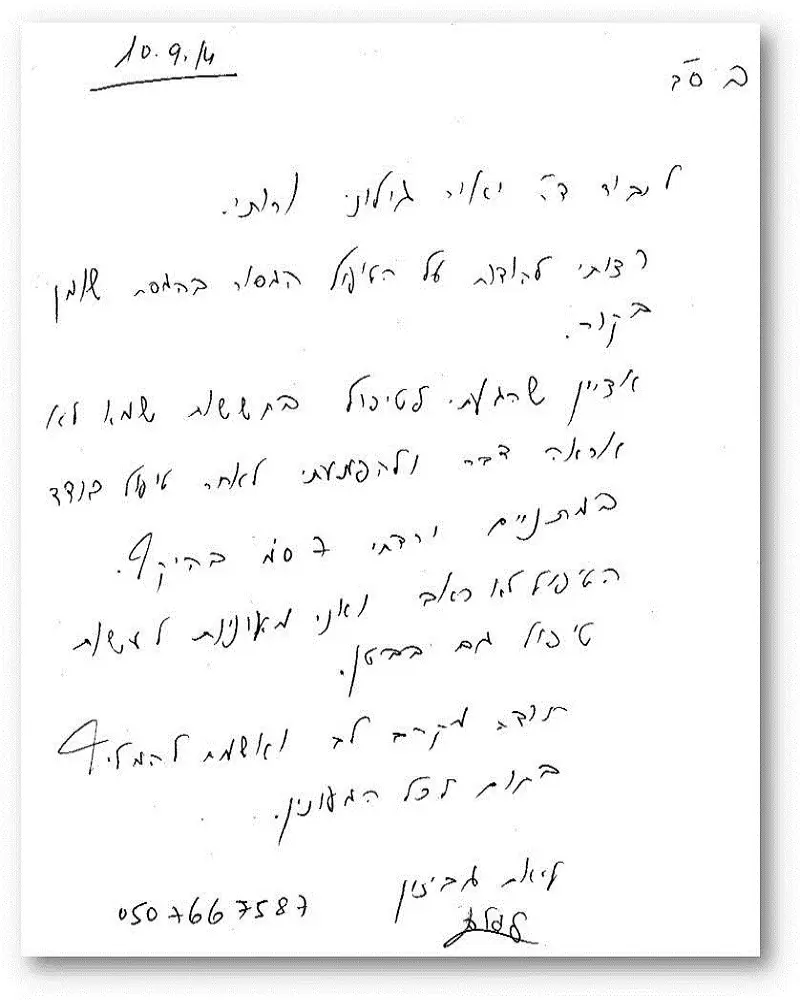 10.9.14
בס"ד
לכבוד ד"ר יאיר גילוני ורותי.
רצותי להודות על הטיפול המסור בהמסת שומן
בקור.
אציין שהגעתי לטיפול בחששות שמא לא
אראה דבר ולהפתעתי לאחר טיפול בודד
במתניים ירדתי 7 סמ בהיקף.
הטיפול לא כואב ואני מעונינת לעשות
טיפול גם בבטן.
תודה מקרב לב ואשמח להמליץ
בחום לכל המעונין.
ליאת גביזון
0507667587